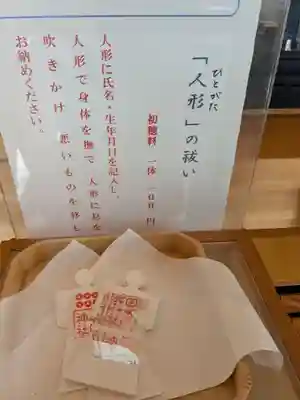 ひとがた
「人形」の祓い
初穂料 一体 一〇〇円
人形に氏名・生年月日を記入し、
人形で身体を撫で 人形に息を
吹きかけ 悪いものを移し
お納めください。